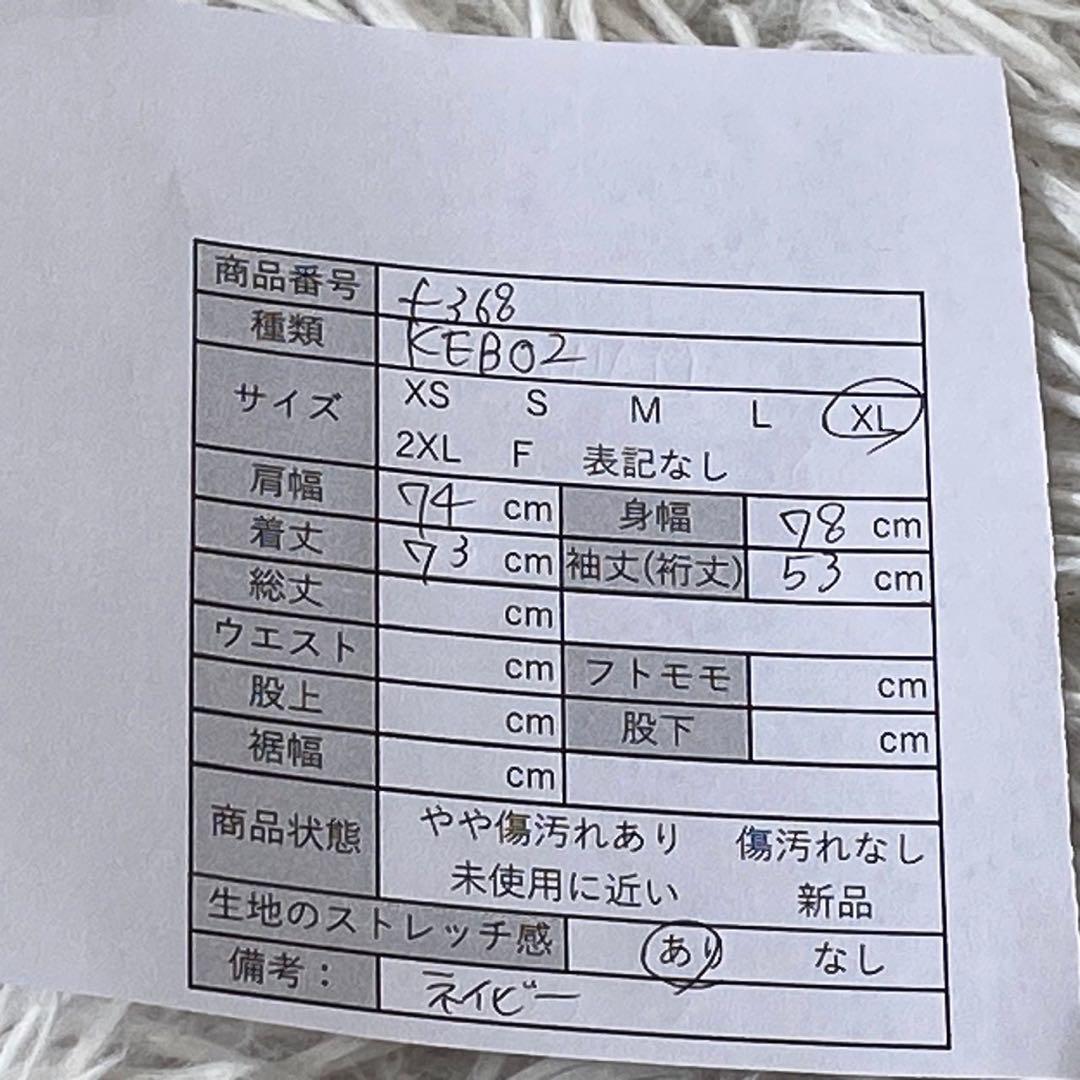 商品番号 f368
種類 KEBO2
サイズ XS S M L XL
2XL F 表記なし
肩幅 74 cm 身幅 78 cm
着丈 73 cm 袖丈(裄丈) 53 cm
総丈 cm
ウエスト cm フトモモ cm
股上 cm 股下 cm
裾幅 cm
商品状態 やや傷汚れあり 傷汚れなし
未使用に近い 新品
生地のストレッチ感 あり なし
備考: ネイビー